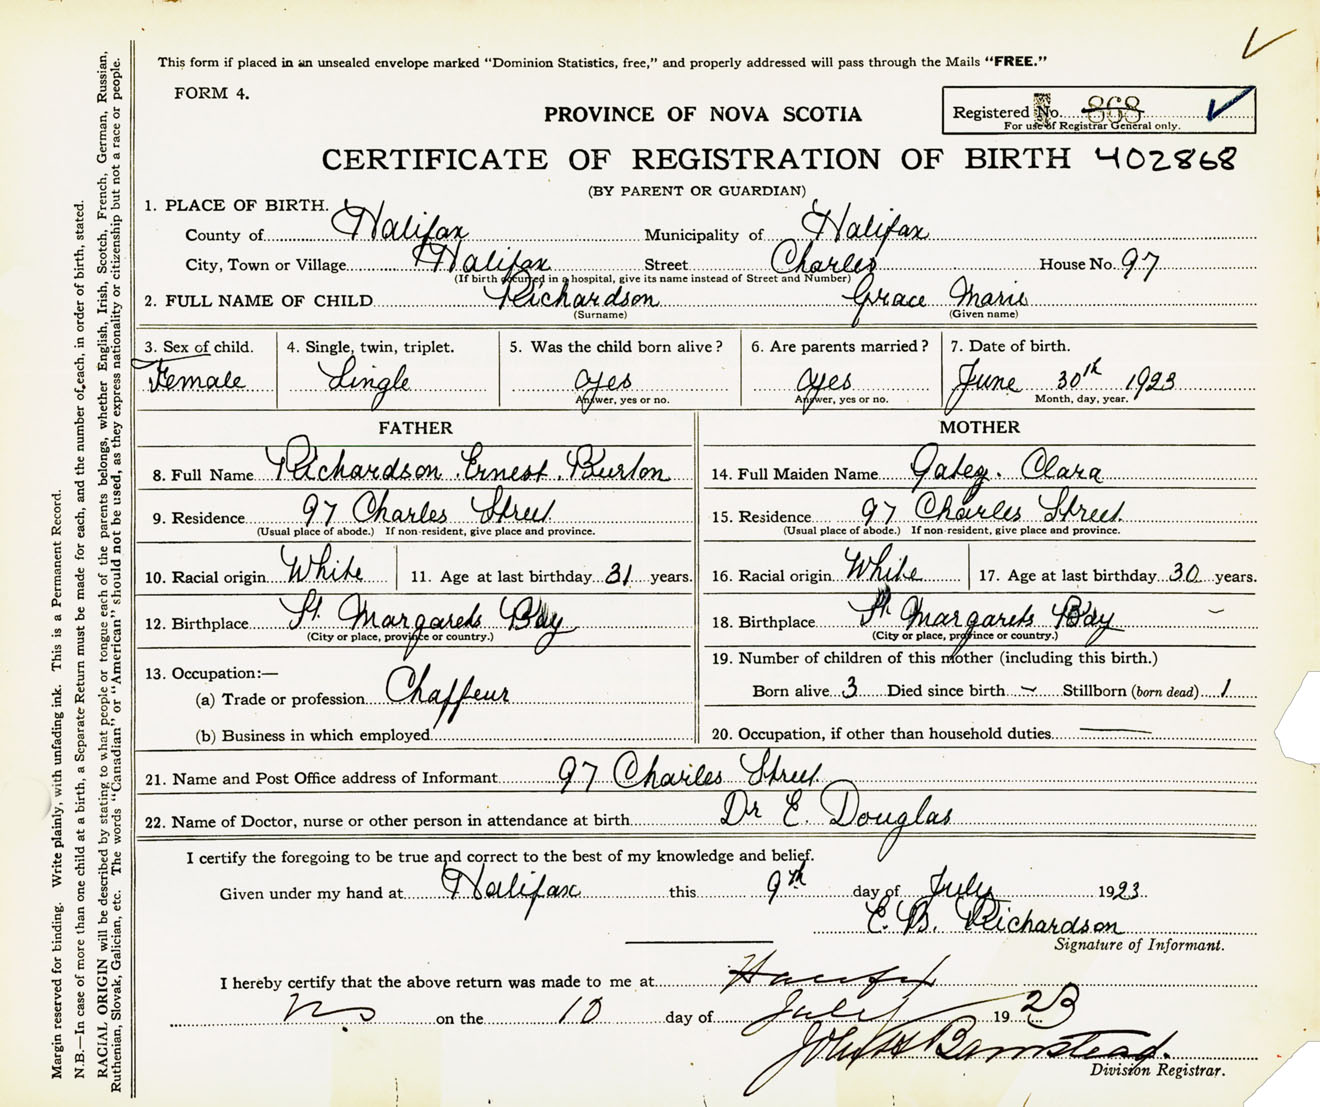 This form if placed in an unsealed envelope marked "Dominion Statistics, free," and properly addressed will pass through the Mails "FREE."
FORM 4.
PROVINCE OF NOVA SCOTIA
Registered No. 868
For use of Registrar General only.
CERTIFICATE OF REGISTRATION OF BIRTH 402868
(BY PARENT OR GUARDIAN)
1. PLACE OF BIRTH.
County of Halifax Municipality of Halifax
City, Town or Village Halifax Street Charles House No. 97
(If birth occurred in a hospital, give its name instead of Street and Number)
2. FULL NAME OF CHILD Richardson Grace Marie
(Surname) (Given name)
3. Sex of child. 4. Single, twin, triplet. 5. Was the child born alive? 6. Are parents married? 7. Date of birth.
Female Single yes yes June 30th 1923
Answer, yes or no. Answer, yes or no. Month, day, year.
FATHER MOTHER
8. Full Name Richardson. Ernest. Burton 14. Full Maiden Name Clara
9. Residence 97 Charles Street. 15. Residence 97 Charles Street.
(Usual place of abode.) If non-resident, give place and province. (Usual place of abode.) If non-resident, give place and province.
10. Racial origin White 11. Age at last birthday 31 years. 16. Racial origin White 17. Age at last birthday 30 years.
12. Birthplace St. Margarets Bay 18. Birthplace St. Margarets Bay
(City or place, province or country.) (City or place, province or country.)
13. Occupation:— 19. Number of children of this mother (including this birth.)
(a) Trade or profession Chaffeur Born alive 3 Died since birth – Stillborn (born dead) 1
(b) Business in which employed 20. Occupation, if other than household duties —
21. Name and Post Office address of Informant 97 Charles Street
22. Name of Doctor, nurse or other person in attendance at birth Dr E. Douglas
I certify the foregoing to be true and correct to the best of my knowledge and belief.
Given under my hand at Halifax this 9th day of July 1923
E. B. Richardson
Signature of Informant.
I hereby certify that the above return was made to me at Halifax
N.S. on the 10 day of July 1923
John Barnstead.
Division Registrar.
Margin reserved for binding. Write plainly, with unfading ink. This is a Permanent Record.
N.B.—In case of more than one child at a birth, a Separate Return must be made for each, and the number of each, in order of birth, stated.
RACIAL ORIGIN will be described by stating to what people or tongue each of the parents belongs, whether English, Irish, Scotch, French, German, Russian,
Ruthenian, Slovak, Galician, etc. The words "Canadian" or "American" should not be used, as they express nationality or citizenship but not a race or people.